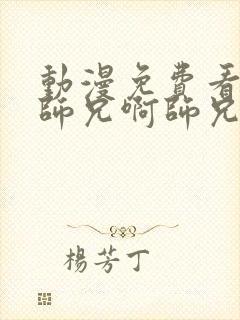 動漫免費看
師兄啊師兄
楊芳丁